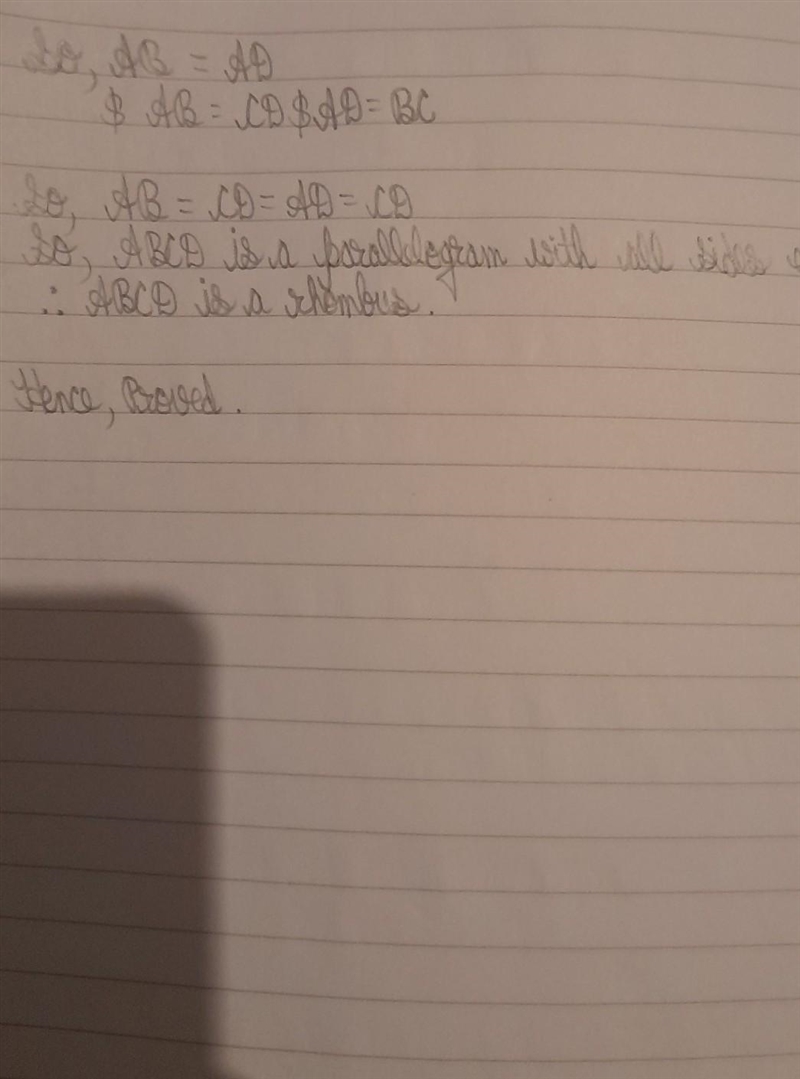 So, AB = AD
& AB = CD & AD = BC
So, AB = CD = AD = CD
So, ABCD is a paralldegram with all sides
∴ ABCD is a rhombus.
Hence, Proved.